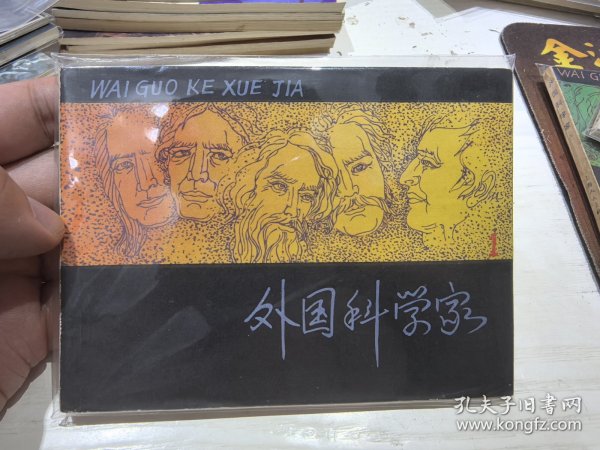 WAI GUO KE XUE JIA
1
外国科学家
金
WAI GU
孔夫子旧书网
www.kongfz.com